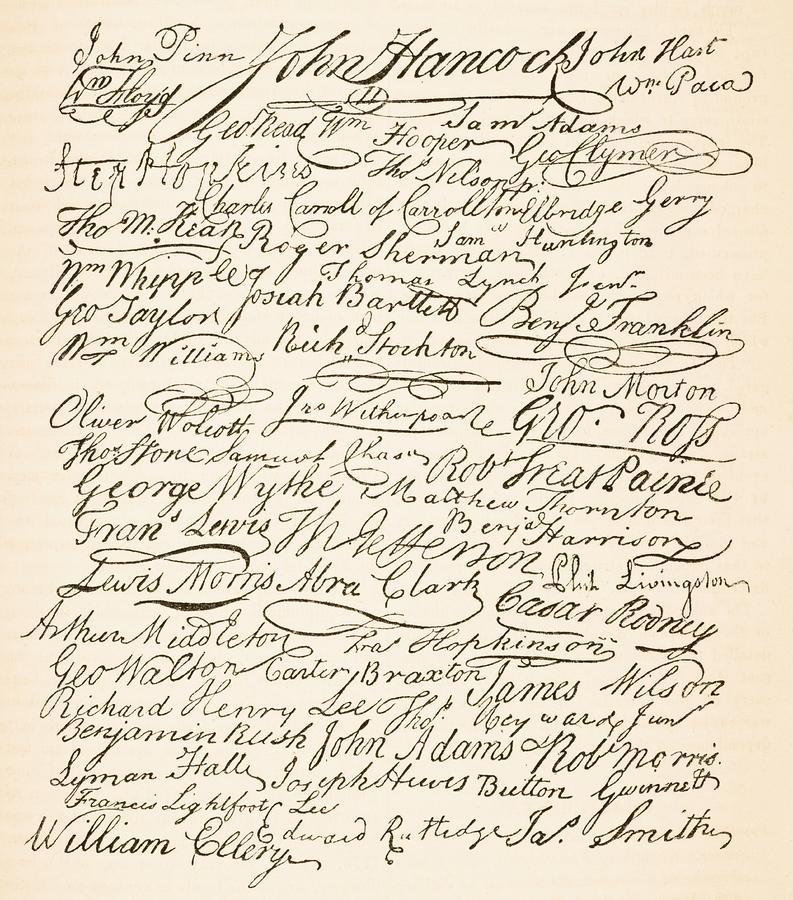 John Penn John Hancock John Hart
Wm Floyd Wm Paca
Geo Read Wm Hooper Sam Adams
Step Hopkins Geo Clymer
Thos Nelson jr.
Charles Carroll of Carrollton Elbridge Gerry
Tho M: Kean Roger Sherman Sam Huntington
Wm Whipple Thomas Lynch Junr.
Josiah Bartlett
Geo Taylor Benj. Franklin
Wm Williams Rich Stockton
John Morton
Oliver Wolcott Jno Witherspoon Geo. Ross
Thos Stone Samuel Chase Robt Treat Paine
George Wythe Matthew Thornton
Frans Lewis Th Jefferson Benja Harrison
Lewis Morris Abra Clark Phil Livingston
Casar Rodney
Arthur Middleton Fras Hopkinson
Geo Walton Carter Braxton James Wilson
Richard Henry Lee Thos. Heyward Junr
Benjamin Rush John Adams Robt Morris.
Lyman Hall Joseph Hewes Button Gwinnett
Francis Lightfoot Lee
William Ellery Edward Rutledge Jas. Smith